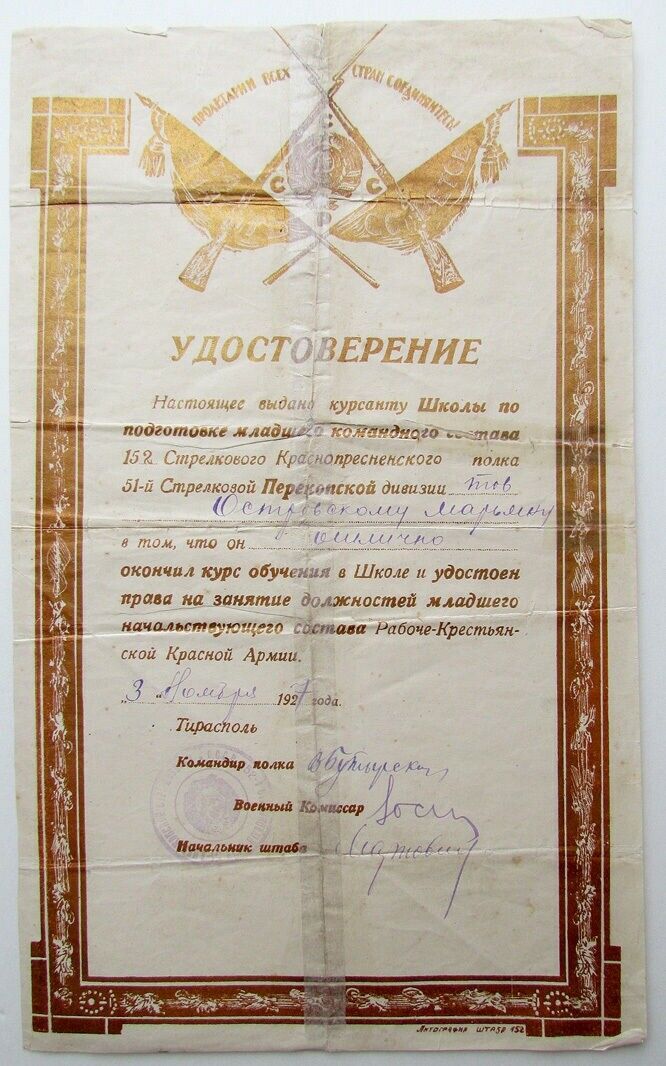 ПРОЛЕТАРИИ ВСЕХ СТРАН СОЕДИНЯЙТЕСЬ!
С С
С Р
УДОСТОВЕРЕНИЕ
Настоящее выдано курсанту Школы по
подготовке младшего командного состава
152 Стрелкового Краснопресненского полка
51-й Стрелковой Перекопской дивизии тов
Островскому Марьяну
в том, что он отлично
окончил курс обучения в Школе и удостоен
права на занятие должностей младшего
начальствующего состава Рабоче-Крестьян-
ской Красной Армии.
„3 „ Ноября 1927 года.
Тирасполь
Командир полка
Военный Комиссар
Начальник штаба
Литография ШТАБА 152